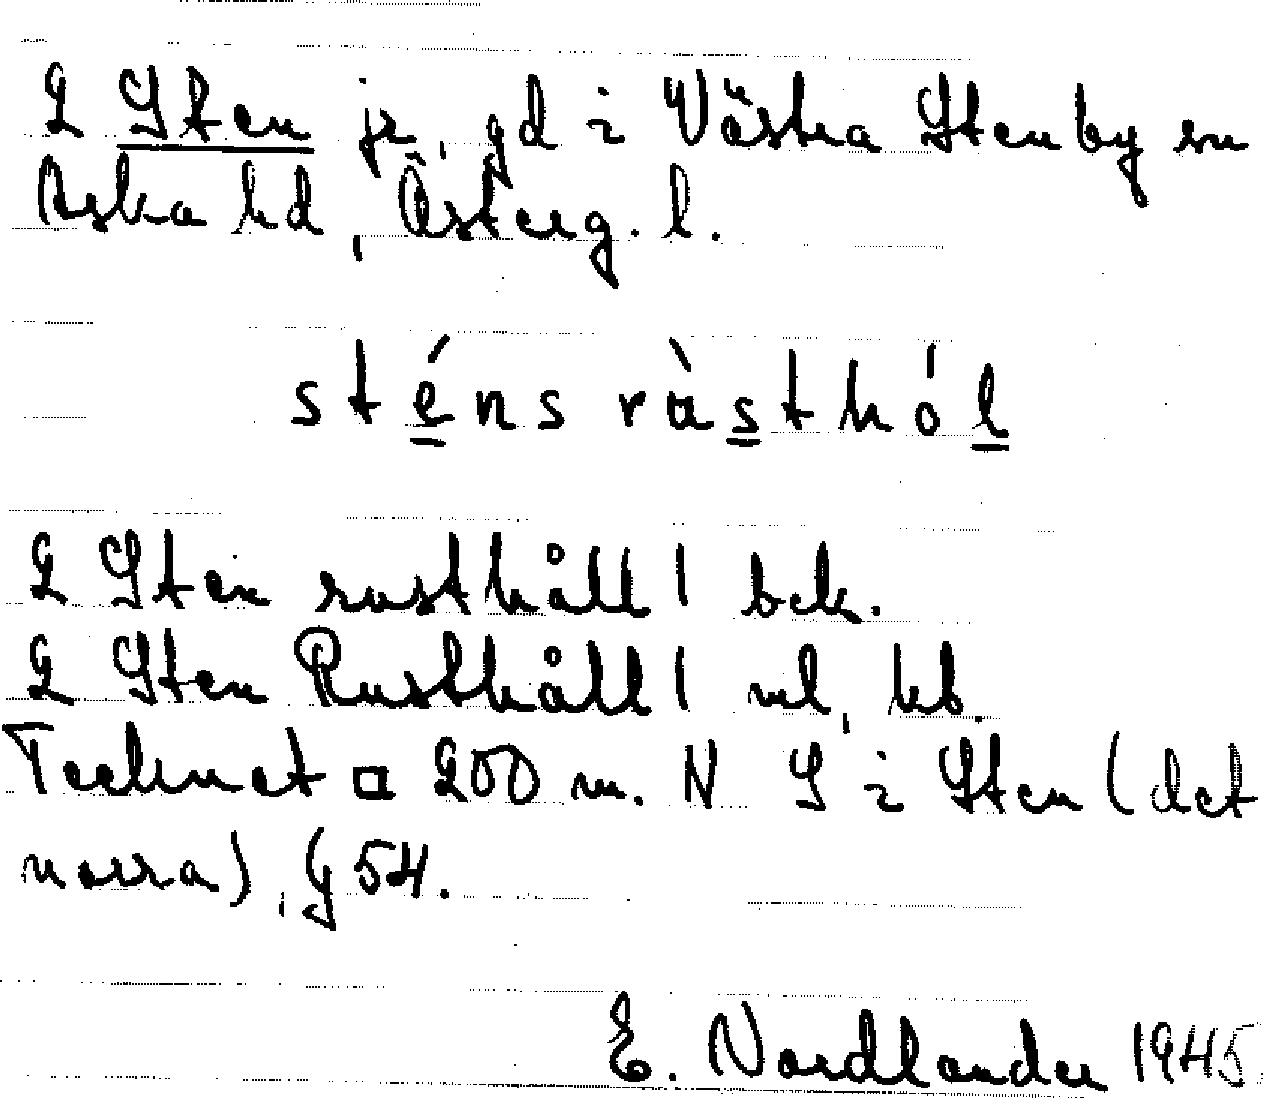 2 Sten jr, gd i Västra Stenby sn
Aska hd, Österg. l.
sténsràsthól
2 Sten rusthåll | bek.
2 Sten Rusthåll | ml, kb.
Tecknet □ 200 m. N S i Sten (det
norra), G 54.
E. Nordlander 1945